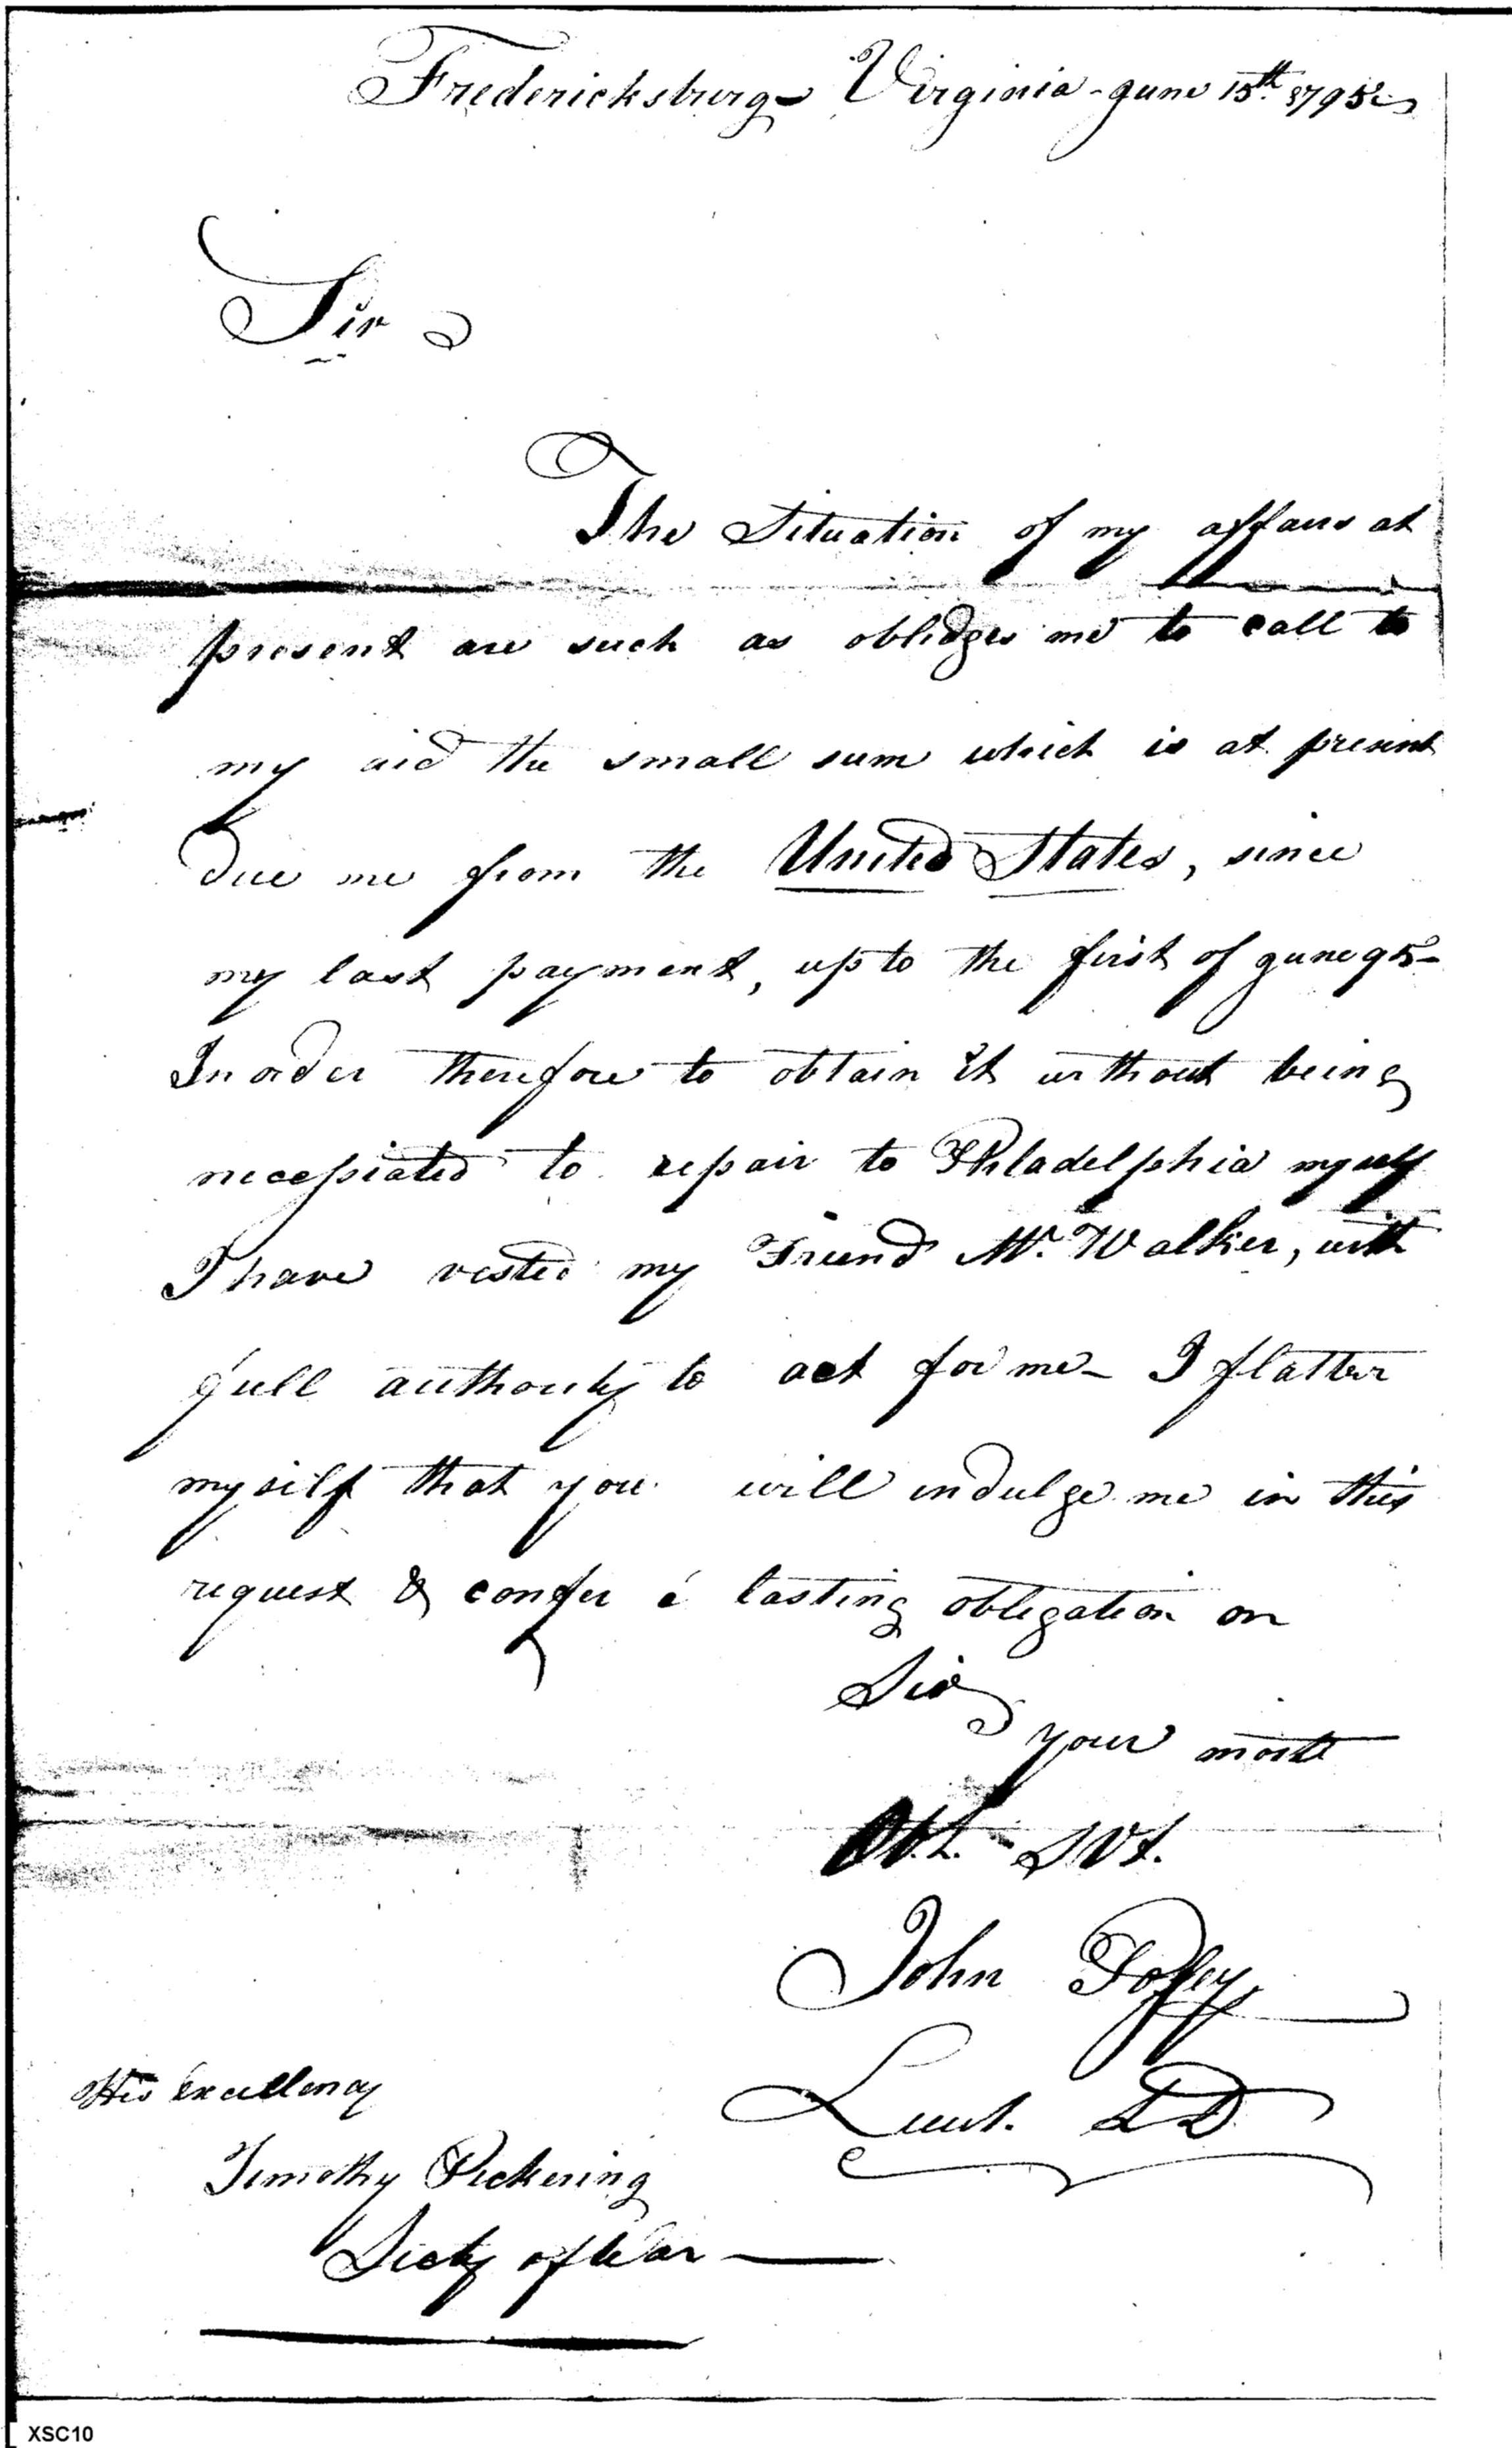 Fredericksburg Virginia - June 15th 1795
Sir
The Situation of my affairs at
present are such as oblidges me to call to
my aid the small sum which is at present
due me from the United States, since
my last payment, up to the first of June 95 -
In order therefore to obtain it without being
necessiated to repair to Philadelphia myself
I have vested my Friend Mr. Walker, with
full authority to act for me - I flatter
myself that you will indulge me in this
request & confer a lasting obligation on
Sir
your most
Obt. Svt.
John Posey
Lieut. LD
His Excellency
Timothy Pickering
Secty of War
XSC10